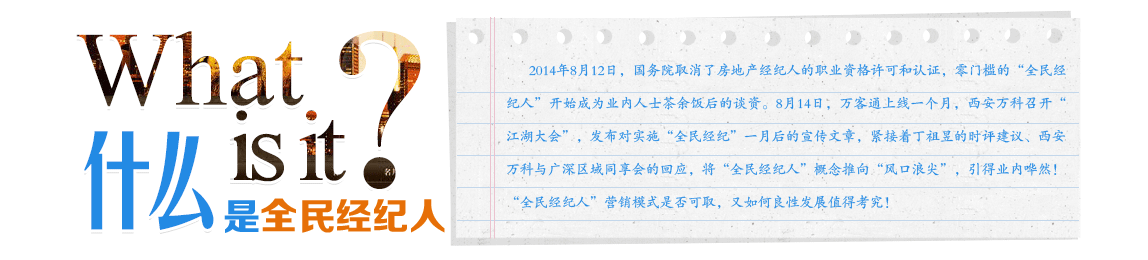 What
is it?
什么
是全民经纪人
2014年8月12日，国务院取消了房地产经纪人的职业资格许可和认证，零门槛的“全民经
纪人”开始成为业内人士茶余饭后的谈资。8月14日，万客通上线一个月，西安万科召开“
江湖大会”，发布对实施“全民经纪”一月后的宣传文章，紧接着丁祖昱的时评建议、西安
万科与广深区域同享会的回应，将“全民经纪人”概念推向“风口浪尖”，引得业内哗然！
“全民经纪人”营销模式是否可取，又如何良性发展值得考究！